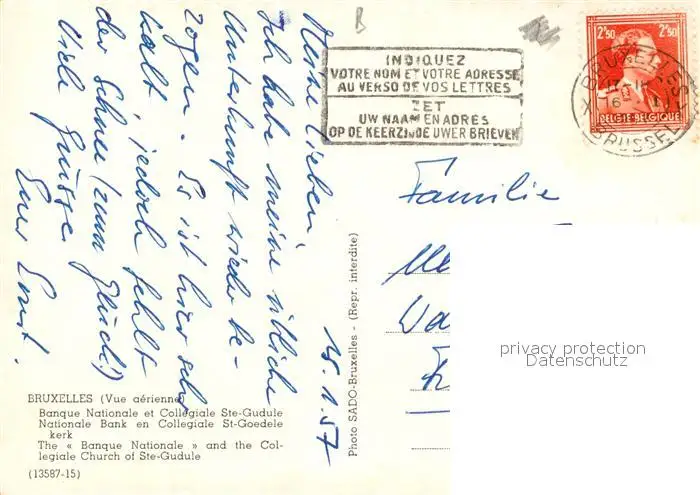 B
INDIQUEZ
VOTRE NOM ET VOTRE ADRESSE
AU VERSO DE VOS LETTRES
ZET
UW NAAM EN ADRES
OP DE KEERZIJDE UWER BRIEVEN
2F50 2F50
BRUXELLES
16
BRUSSEL
BELGIE-BELGIQUE
15.1.57
Meine Lieben,
Ich habe meine übliche
Unterkunft wieder be-
zogen. Es ist hier sehr
kalt, jedoch fehlt
der Schnee (zum Glück!)
Viele Grüsse
Euer Ernst.
Familie
privacy protection
Datenschutz
Photo SADO-Bruxelles - (Repr. interdite)
BRUXELLES (Vue aérienne)
Banque Nationale et Collégiale Ste-Gudule
Nationale Bank en Collegiale St-Goedele
kerk
The « Banque Nationale » and the Col-
legiale Church of Ste-Gudule
(13587-15)